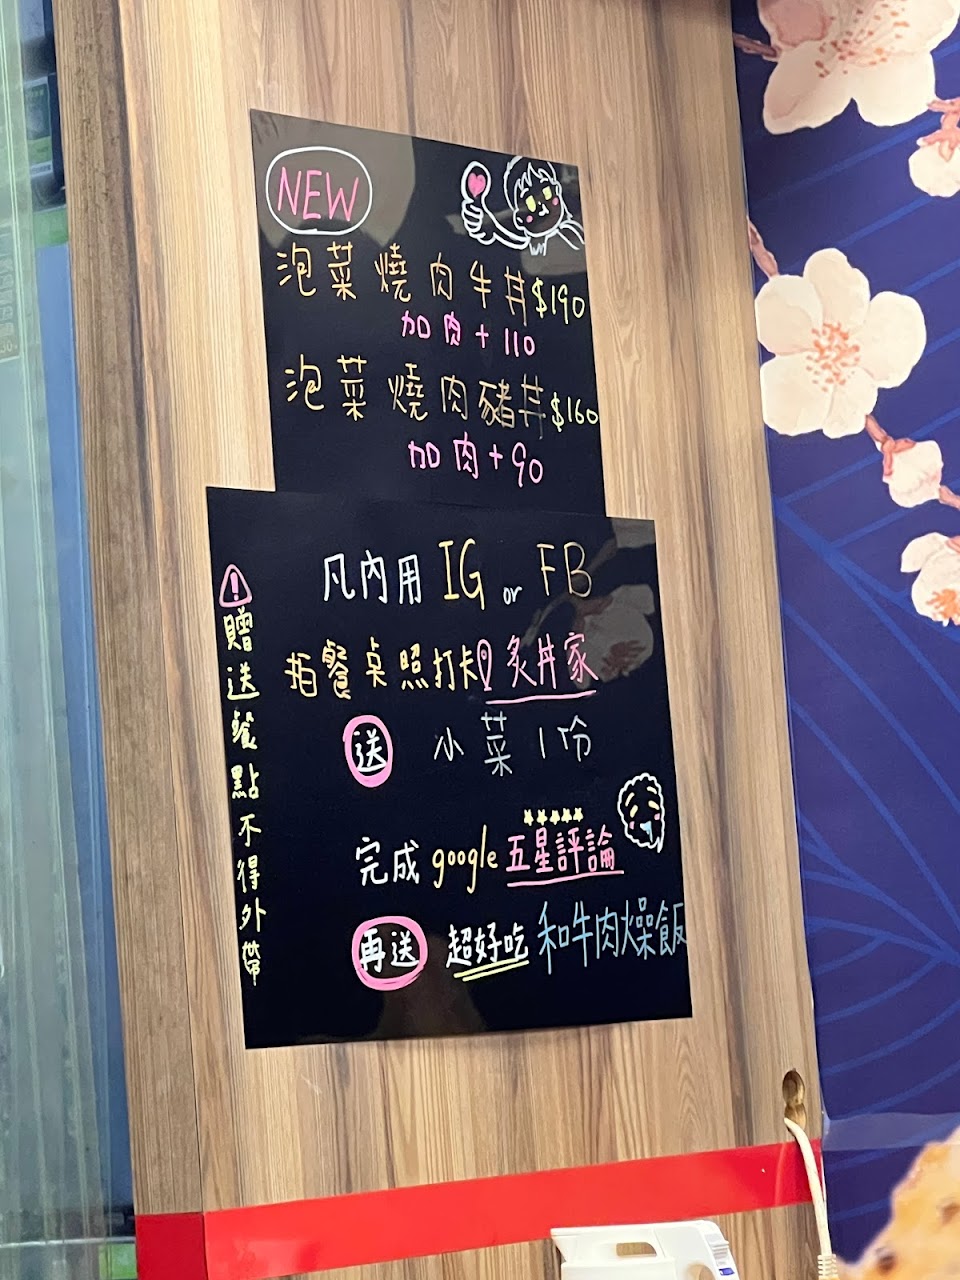 NEW
泡菜燒肉牛丼$190
加肉+110
泡菜燒肉豬丼$160
加肉+90
凡內用 IG or FB
拍餐桌照打卡 炙丼家
送 小菜1份
完成google五星評論
再送 超好吃 和牛肉燥飯
贈送餐點不得外帶